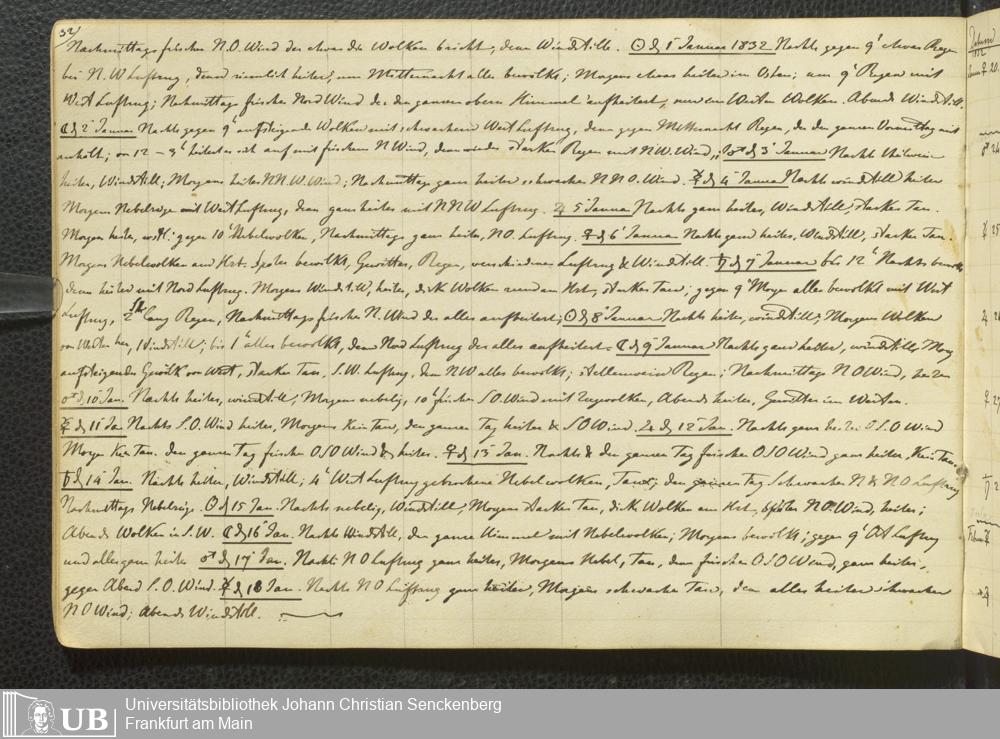 32/
Nachmittags frischer N.O. Wind der etwas die Wolken bricht, dann Windstille. ☉ d. 1t Januar 1832 Nachts gegen 9h etwas Regen
bei N.W Luftzug, dann ziemlich heiter, um Mitternacht alles bewölkt; Morgens etwas heiter im Osten; um 9h Regen mit
West Luftzug; Nachmittags frischer Nord Wind der den ganzen obern Himmel aufheitert, nur im Westen Wolken. Abends Windstill.
☾ d. 2t Januar Nachts gegen 9h aufsteigende Wolken mit schwachem West Luftzug, dann gegen Mitternacht Regen, der den ganzen Vormittag mit
anhält; von 12 – 3h heitert es sich auf mit frischem N Wind, dann wieder starker Regen mit N.W. Wind, ♂ d. 3t Januar Nachts theilweise
heiter, Windstill; Morgens heiter N.N.W. Wind; Nachmittags ganz heiter schwacher N N O. Wind. ☿ d. 4t Januar Nachts windstill heiter
Morgens Nebelzüge mit West Luftzug, dann ganz heiter mit N N W Luftzug. ♃ 5t Januar Nachts ganz heiter, Windstille, starker Tau.
Morgen heiter, gegen 10h Nebelwolken, Nachmittags ganz heiter, N.O. Luftzug. ♀ d. 6t Januar Nachts ganz heiter, Windstill, starker Tau.
Morgens Nebelwolken am Hrt. Später bewölkt, Gewitter, Regen, verschiedener Luftzug & Windstill. ♄ d. 7t Januar bis 12h Nachts bewölkt
dann heiter mit Nord Luftzug. Morgens Windstill, heiter, dick Wolken rund am Hrt, starker Tau; gegen 9h Morgen alles bewölkt mit West
Luftzug, lang Regen, Nachmittags frischer N. Wind der alles aufheitert; ☉ d. 8t Januar Nachts heiter, windstill, Morgens Wolken
von Westen her, Windstill; bis 1h alles bewölkt, dann Nord Luftzug der alles aufheitert. ☾ d. 9t Januar Nachts ganz heiter, windstill, Morg
aufsteigendes Gewölk von West, starker Tau, S.W. Luftzug, dann N W alles bewölkt; stellenweise Regen; Nachmittags N O Wind, heiter
♂ d. 10t Jan. Nachts heiter, windstill, Morgens nebelig, 10h frischer S O. Wind mit Zugwolken, Abends heiter, Gewitter im Westen.
☿ d. 11t Jan Nachts S.O. Wind heiter, Morgens Kein Tau, den ganzen Tag heiter & S O Wind. ♃ d. 12t Jan. Nachts ganz heiter O S O Wind
Morgen Kein Tau. den ganzen Tag frischer O S O Wind & heiter. ♀ d. 13t Jan. Nachts & den ganzen Tag frischer O S O Wind ganz heiter, Kein Tau
♄ d. 14t Jan. Nachts heiter, Windstill; 4h West Luftzug gebrochene Nebelwolken, Tau; den ganzen Tag schwacher N & N O Luftzug
Nachmittags Nebelzüge. ☉ d. 15t Jan. Nachts nebelig, Windstill, Morgens starker Tau, dick Wolken am Hrt, später N O. Wind, heiter;
Abends Wolken in S.W. ☾ d. 16t Jan. Nachts Windstill, der ganze Himmel mit Nebelwolken; Morgens bewölkt; gegen 9h Ost Luftzug
und alles ganz heiter ♂ d. 17t Jan. Nachts N O Luftzug ganz heiter, Morgens Nebel, Tau, dann frischer O S O Wind, ganz heiter,
gegen Abend S.O. Wind. ☿ d. 18t Jan. Nachts N O Luftzug ganz heiter, Morgens schwacher Tau, dann alles heiter schwacher
N O Wind; Abends Windstill.
UB
Universitätsbibliothek Johann Christian Senckenberg
Frankfurt am Main